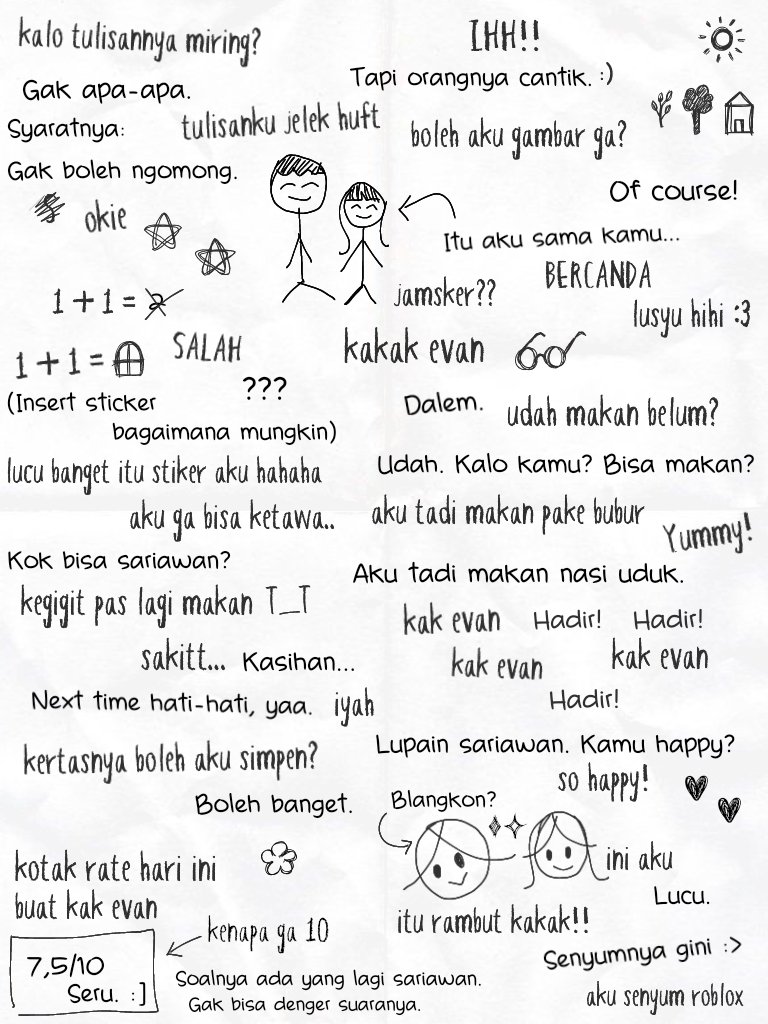 kalo tulisannya miring?
Gak apa-apa.
Syaratnya:
tulisanku jelek huft
Gak boleh ngomong.
okie
1 + 1 = 2
1 + 1 =
SALAH
???
(Insert sticker
bagaimana mungkin)
lucu banget itu stiker aku hahaha
aku ga bisa ketawa..
Kok bisa sariawan?
kegigit pas lagi makan T_T
sakitt...
Kasihan...
Next time hati-hati, yaa.
iyah
kertasnya boleh aku simpen?
Boleh banget.
kotak rate hari ini
buat kak evan
7,5/10
Seru. :]
kenapa ga 10
Soalnya ada yang lagi sariawan.
Gak bisa denger suaranya.
IHH!!
Tapi orangnya cantik. :)
boleh aku gambar ga?
Of course!
Itu aku sama kamu...
BERCANDA
jamsker??
lusyu hihi :3
kakak evan
Dalem.
udah makan belum?
Udah. Kalo kamu? Bisa makan?
aku tadi makan pake bubur
Yummy!
Aku tadi makan nasi uduk.
kak evan
Hadir!
Hadir!
kak evan
kak evan
Hadir!
Lupain sariawan. Kamu happy?
so happy!
Blangkon?
ini aku
Lucu.
itu rambut kakak!!
Senyumnya gini :>
aku senyum roblox